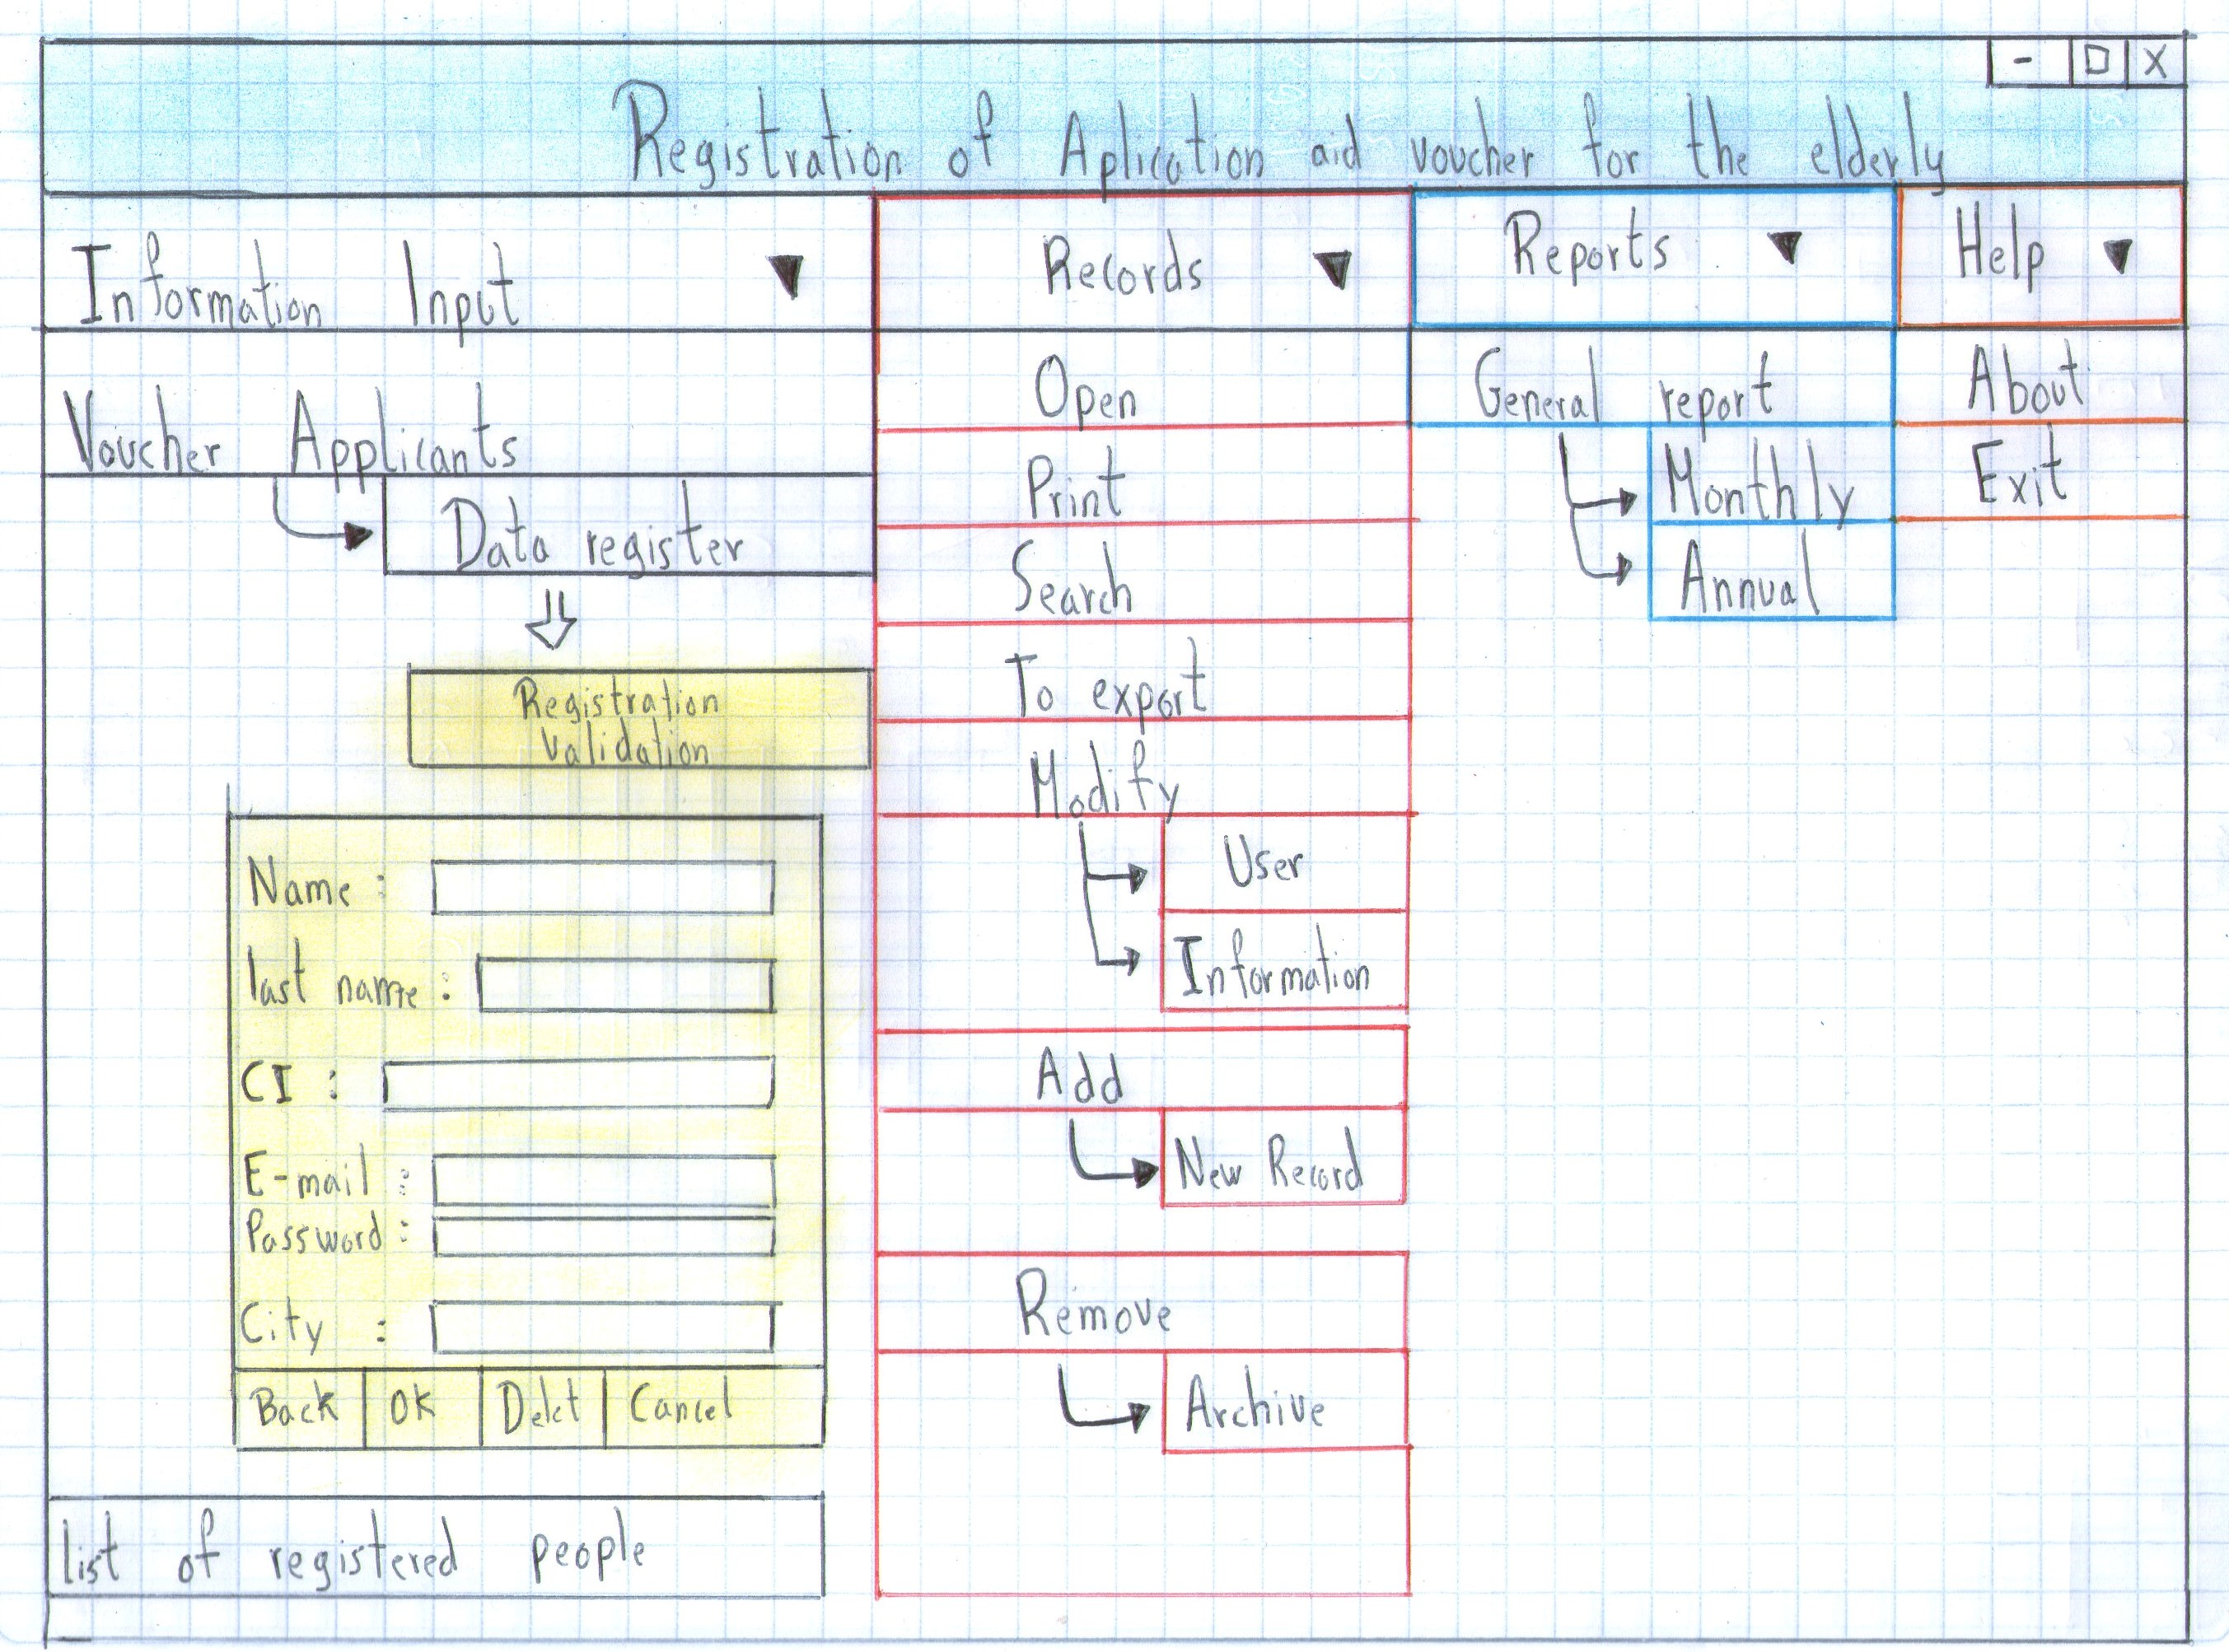 - □ X
Registration of Aplication aid voucher for the elderly
Information Input ▼
Records ▼
Reports ▼
Help ▼
Voucher Applicants
Data register
Registration
validation
Name :
last name :
CI :
E-mail :
Password :
City :
Back
OK
Delet
Cancel
list of registered people
Open
Print
Search
To export
Modify
User
Information
Add
New Record
Remove
Archive
General report
Monthly
Annual
About
Exit